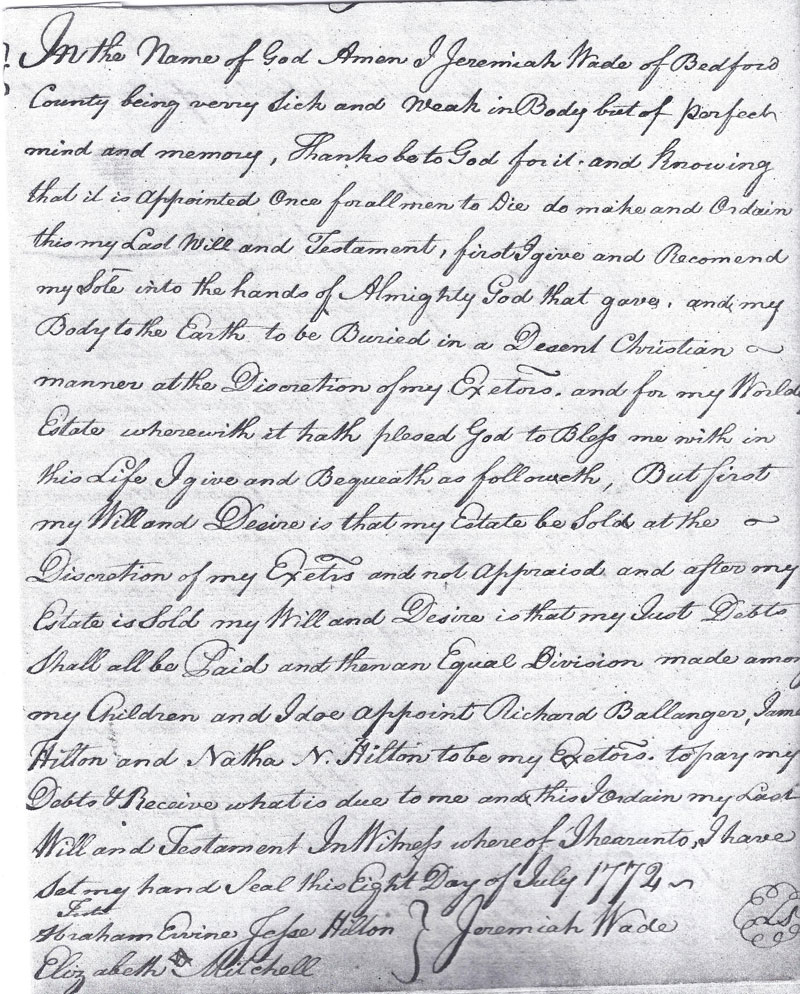 In the Name of God Amen I Jeremiah Wade of Bedford
County being verry Sick and Weak in Body but of perfect
mind and memory, Thanks be to God for it. and knowing
that it is Appointed Once for all men to Die do make and Ordain
this my Last Will and Testament, first I give and Recomend
my Sole into the hands of Almighty God that gave. and my
Body to the Earth to be Buried in a Desent Christian ~
manner at the Discretion of my Exetors. and for my World
Estate wherewith it hath plesed God to Bless me with in
this Life I give and Bequeath as followeth, But first
my Will and Desire is that my Estate be Sold at the ~
Discretion of my Exetrs and not Appraisd and after my
Estate is Sold my Will and Desire is that my Just Debts
Shall all be Paid and then an Equal Division made among
my Children and I doe appoint Richard Ballanger, Jame
Hilton and Natha N. Hilton to be my Exetors. to pay my
Debts & Receive what is due to me and this I Ordain my Last
Will and Testament In Witness whereof I hearunto, I have
Set my hand Seal this Eight Day of July 1772 ~
Teste
Abraham Ervine Jesse Hilton } Jeremiah Wade LS
Elizabeth Mitchell